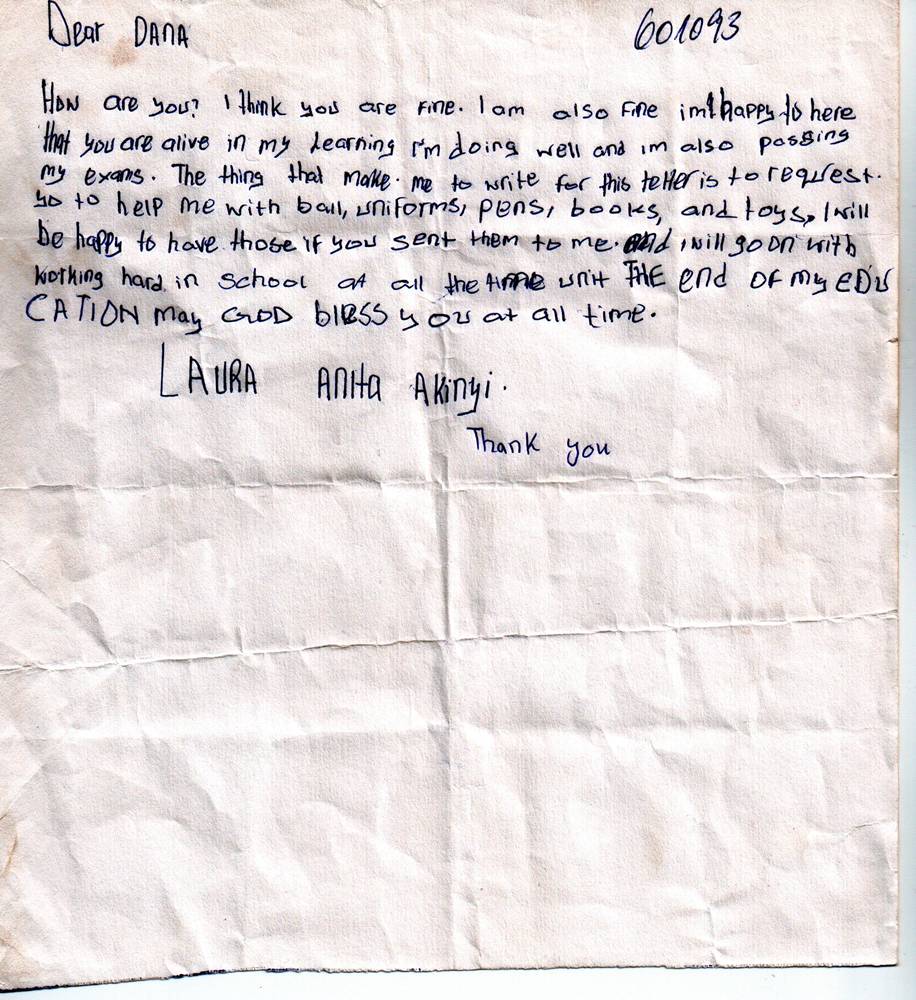 Dear DANA 601093
How are you? I think you are Fine. I am also Fine im happy to here
that you are alive in my Learning I'm doing well and im also passing
my exams. The thing that make me to write for this letter is to request.
yo to help me with ball, uniforms, pens, books, and toys, I will
be happy to have those if you sent them to me. and i will go on with
Working hard in school at all the time unit THE end OF my EDU
CATION may GOD bless you at all time.
LAURA ANITA AKINYI.
Thank you